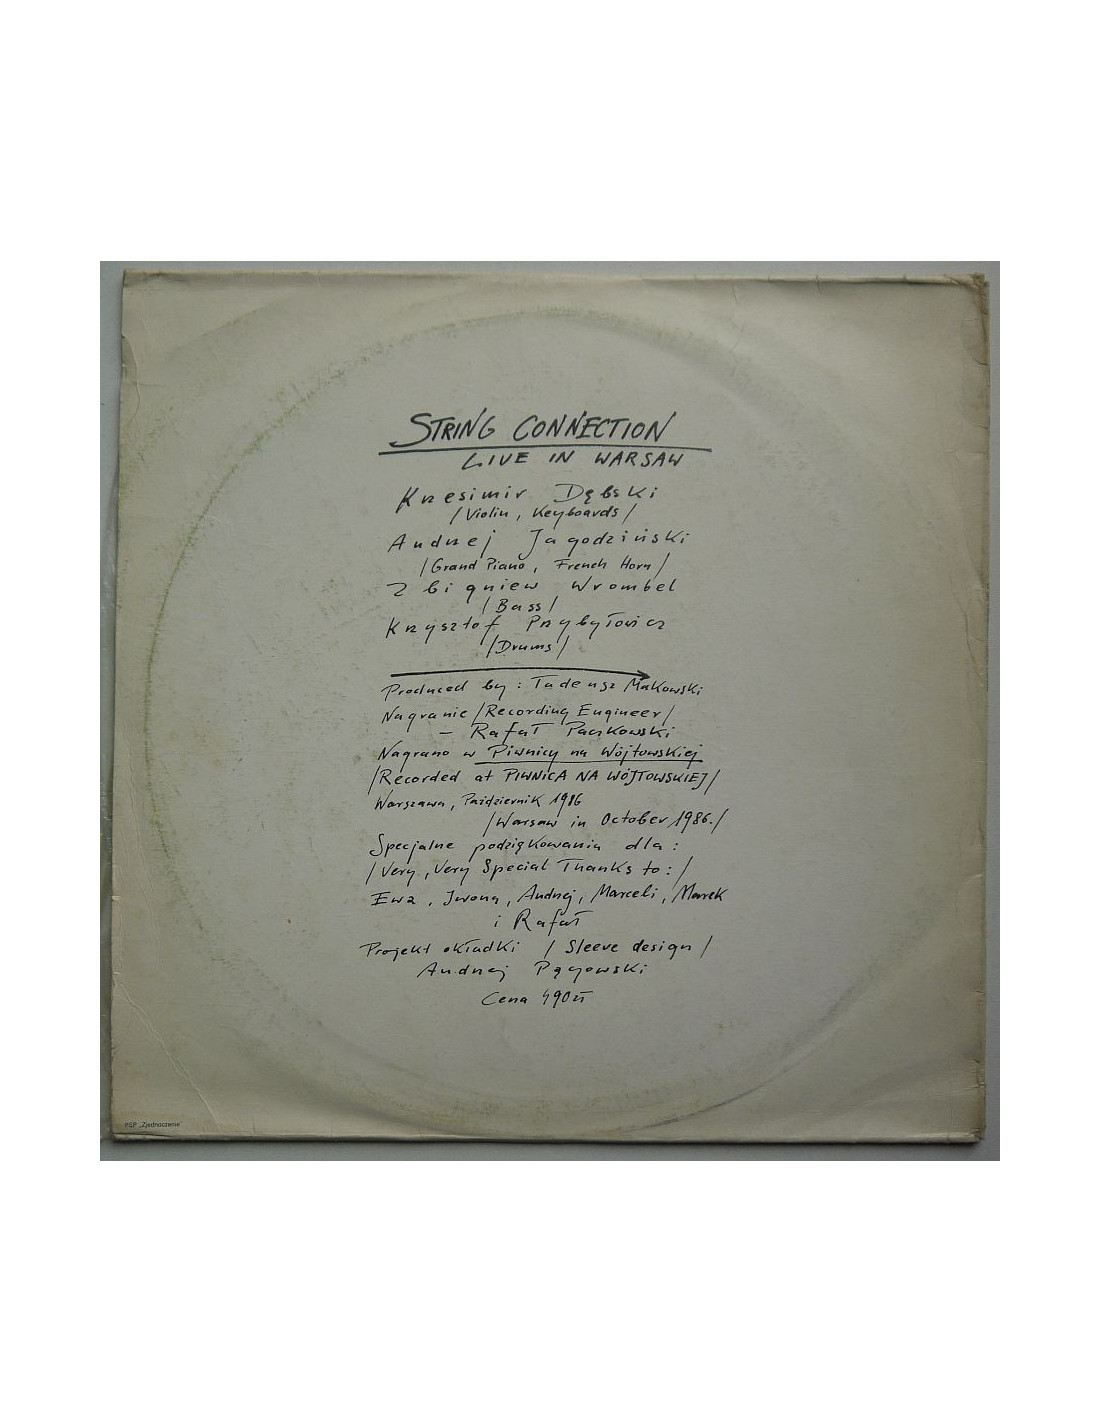 STRING CONNECTION
LIVE IN WARSAW
Krzesimir Dębski
/Violin, Keyboards/
Andrzej Jagodziński
/Grand Piano, French Horn/
Zbigniew Wrombel
/Bass/
Krzysztof Przybyłowicz
/Drums/
Produced by: Tadeusz Makowski
Nagranie /Recording Engineer/
– Rafał Paczkowski
Nagrano w Piwnicy na Wójtowskiej
/Recorded at PIWNICA NA WÓJTOWSKIEJ/
Warszawa, Październik 1986
/Warsaw in October 1986./
Specjalne podziękowania dla:
/Very, Very Special Thanks to:/
Ewa, Iwona, Andrzej, Marceli, Marek
i Rafał
Projekt okładki /Sleeve design/
Andrzej Pągowski
Cena 490zł
PSP „Zjednoczenie"